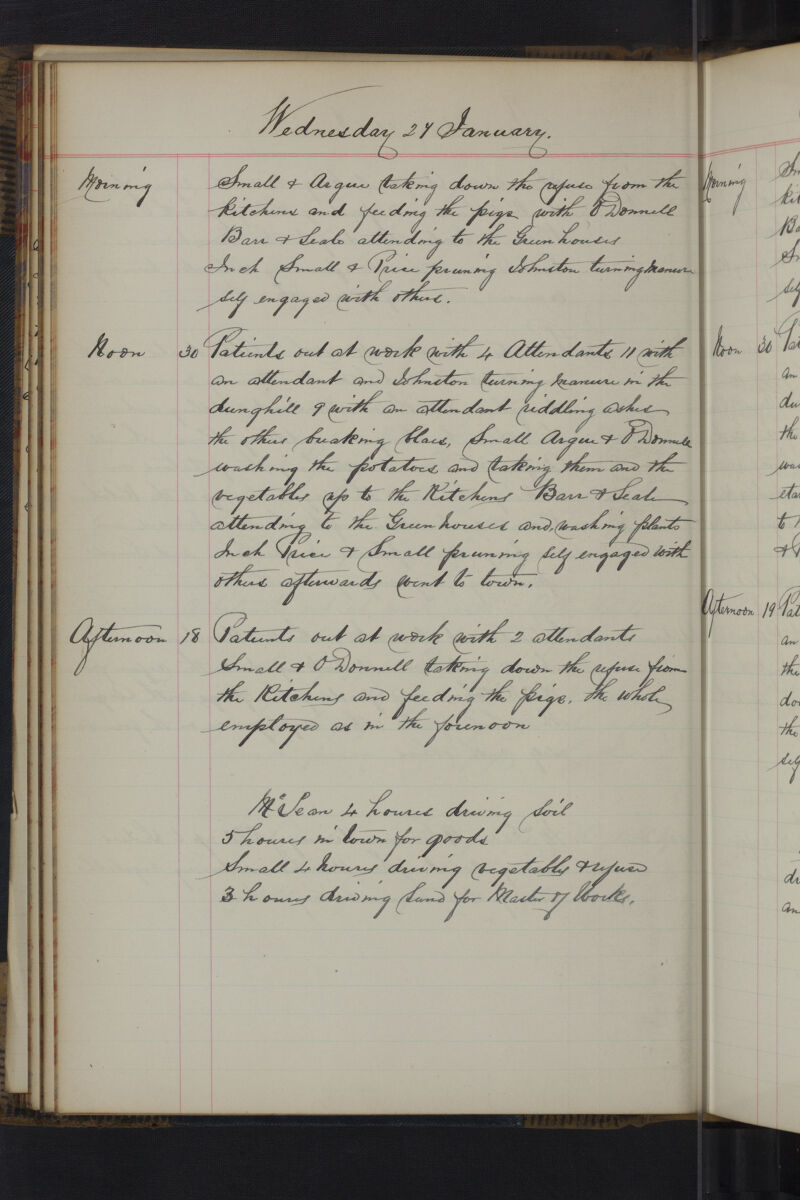 Wednesday 27 January.
Morning Small & Argue taking down the refuse from the
kitchens and feeding the pigs with O'Donnell
Barr & Seale attending to the Greenhouses
Inch Small & Price pruning Johnston turning manure
self engaged with others.
Noon 30 Patients out at work with 4 Attendants 11 with
an attendant and Johnston turning manure in the
dunghill 9 with an attendant riddling ashes
the others breaking blaes, Small Argue & O'Donnell
washing the potatoes and taking them and the
vegetables up to the Kitchens Barr & Seale
attending to the Greenhouses and washing plants
Inch Price & Small pruning self engaged with
others afterwards went to town.
Afternoon 18 Patients out at work with 2 attendants
Small & O'Donnell taking down the refuse from
the Kitchens and feeding the pigs. the whole
employed as in the forenoon
McSean 4 houres driving soil
5 houres in town for goods
Small 4 houres driving vegetables & refuse
3 houres driving sand for Master of Works.
Morning
Noon 30
Afternoon 19